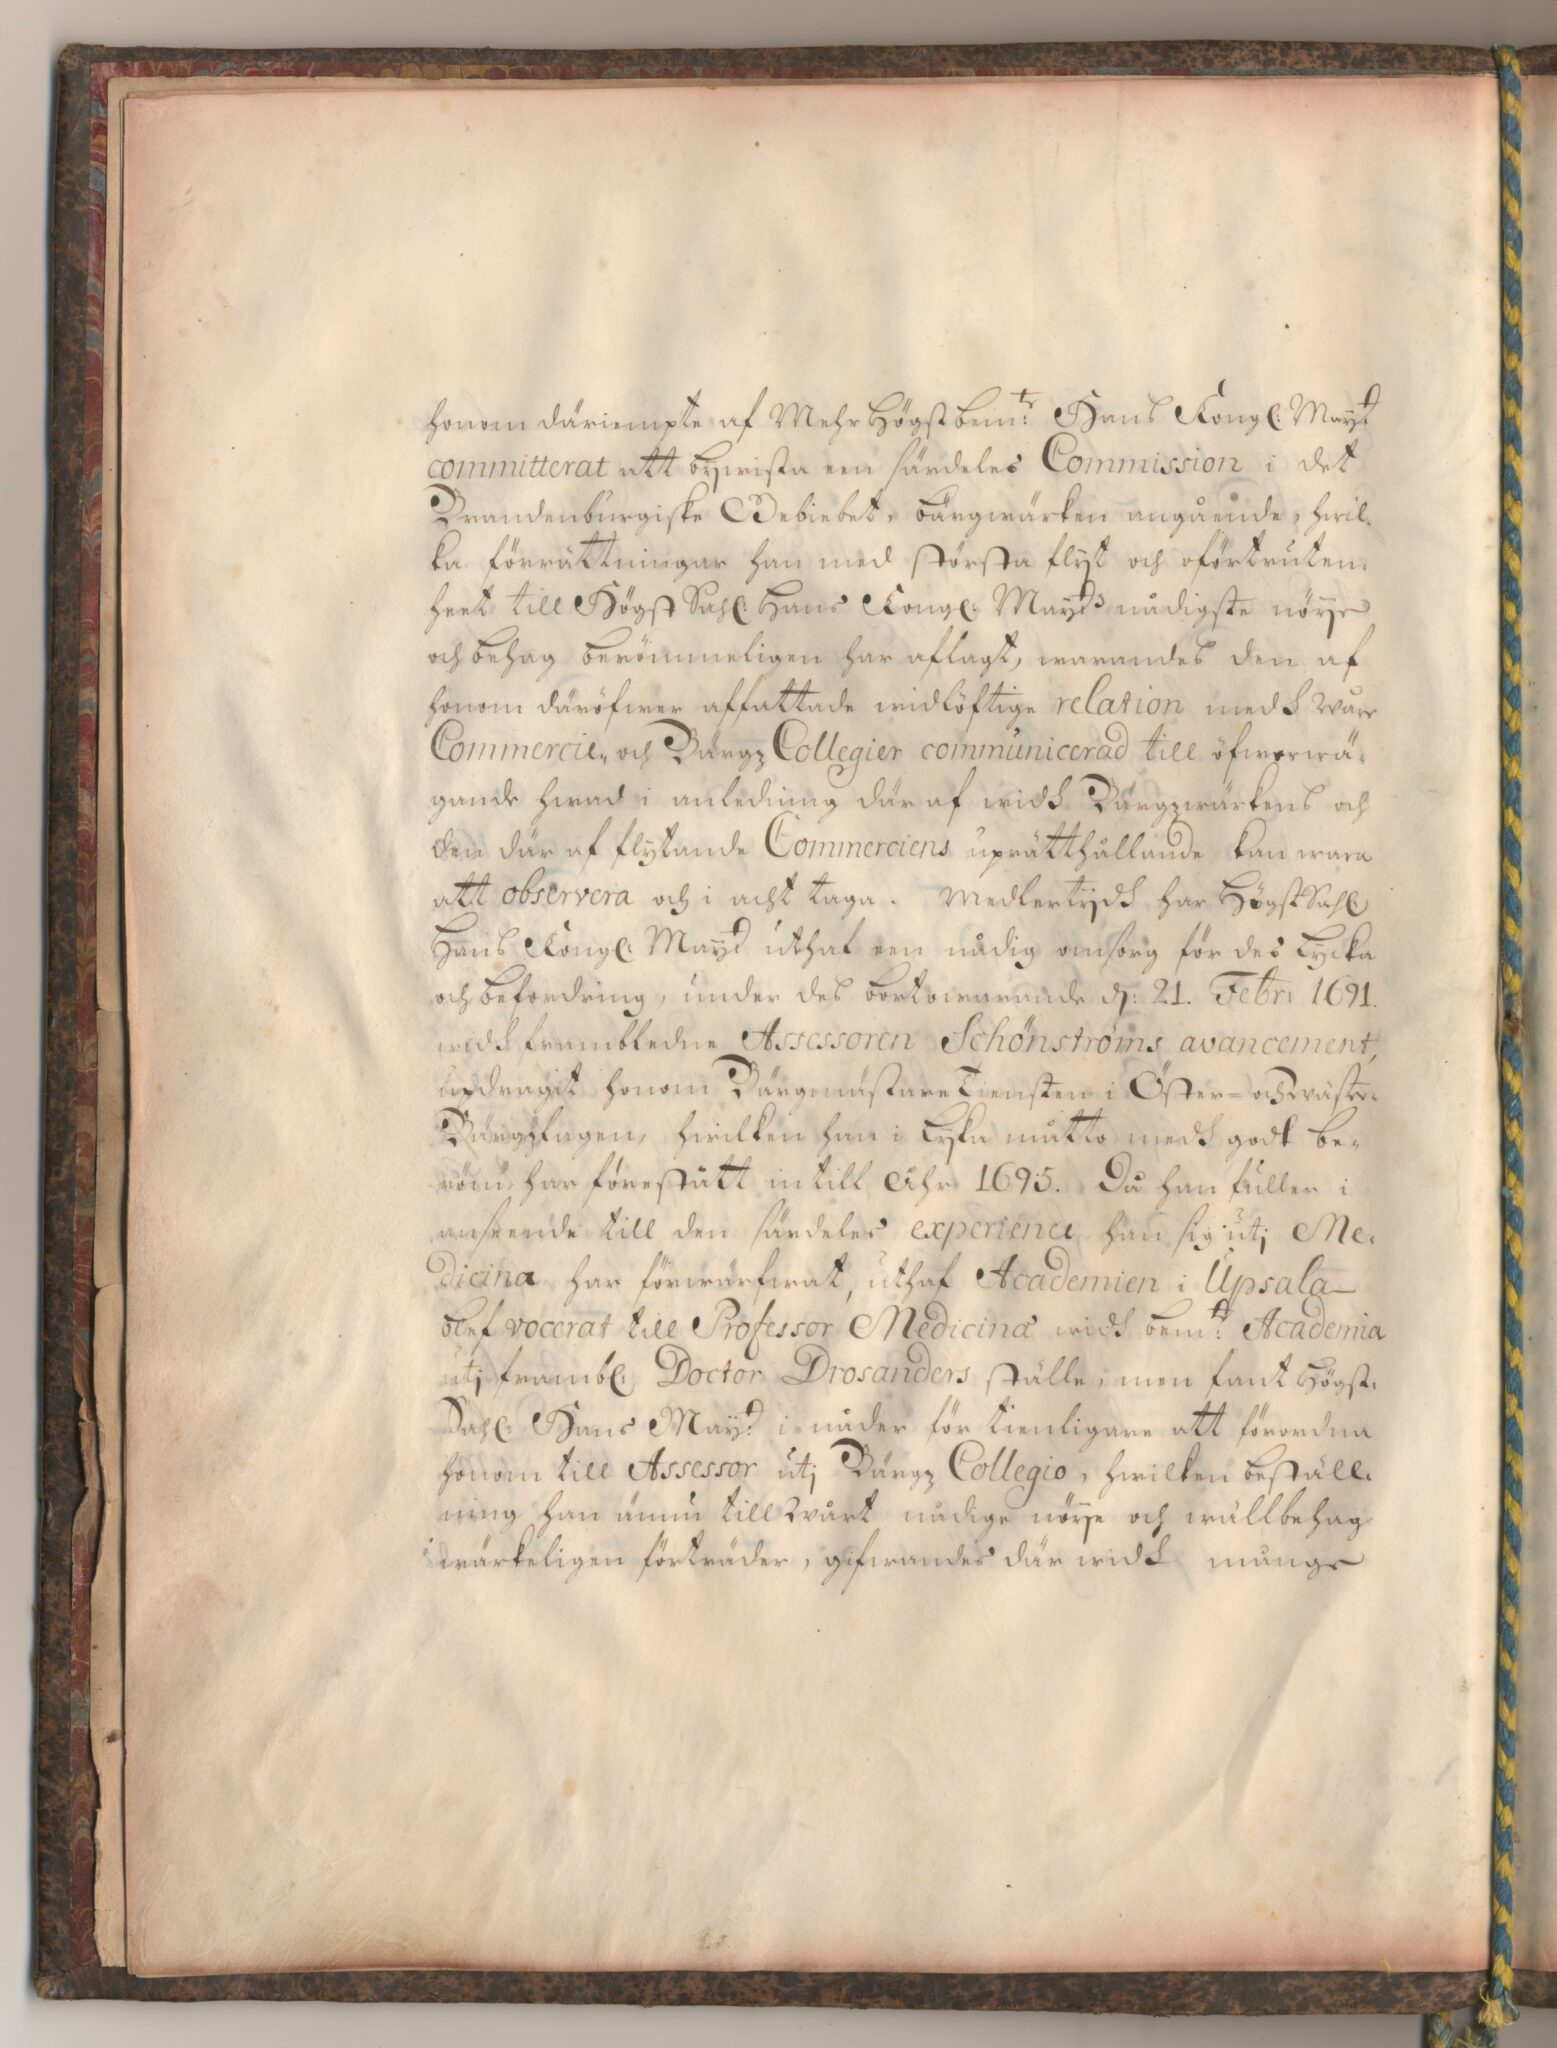 honom däriempte af Mehr Högstbem:te Hans Kongl: May:tt
committerat att bywista een särdeles Commission i det
Brandenburgiske Gebietet, bärgwärken angående, hwil-
ka förrättningar han med största flyt och oförtruten-
heet till Högst Sahl: Hans Kongl: May:tts nådigste nöije
och behag berömmeligen har aflagt, warandes den af
honom däröfwer affattade widlöftige relation medh Wåre
Commercie- och Bärgz Collegier communicerad till öfwerwä-
gande hwad i anledning där af widh Bärgzwärkens och
den där af flytande Commerciens uprätthållande kan wara
att observera och i acht taga. Medlertydh har Högst Sahl:
Hans Kongl: May:tt uthaf een nådig omsorg för des Lycka
och befordring, under des bortowarande d: 21. Febr: 1691.
widh frambledne Assessoren Schönströms avancement,
updragit honom Bärgmästare Tiensten i Öster- och Wäster-
Bärgzlagen, hwilken han i lyka måtto medh godt be-
röm har förestått intill Åhr 1695. Då han fuller i
anseende till den särdeles experience han sig utj Me-
dicina har förwärfwat, uthaf Academien i Upsala
blef vocerat till Professor Medicinæ widh bem:te Academia
utj frambl: Doctor Drosanders ställe, men fant Högst-
Sahl: Hans May:tt i nåder för tienligare att förordna
honom till Assessor utj Bärgz Collegio, hwilken beställ-
ning han ännu till Wårt nådige nöije och wällbehag
wärkeligen förträder, gifwandes där widh månge